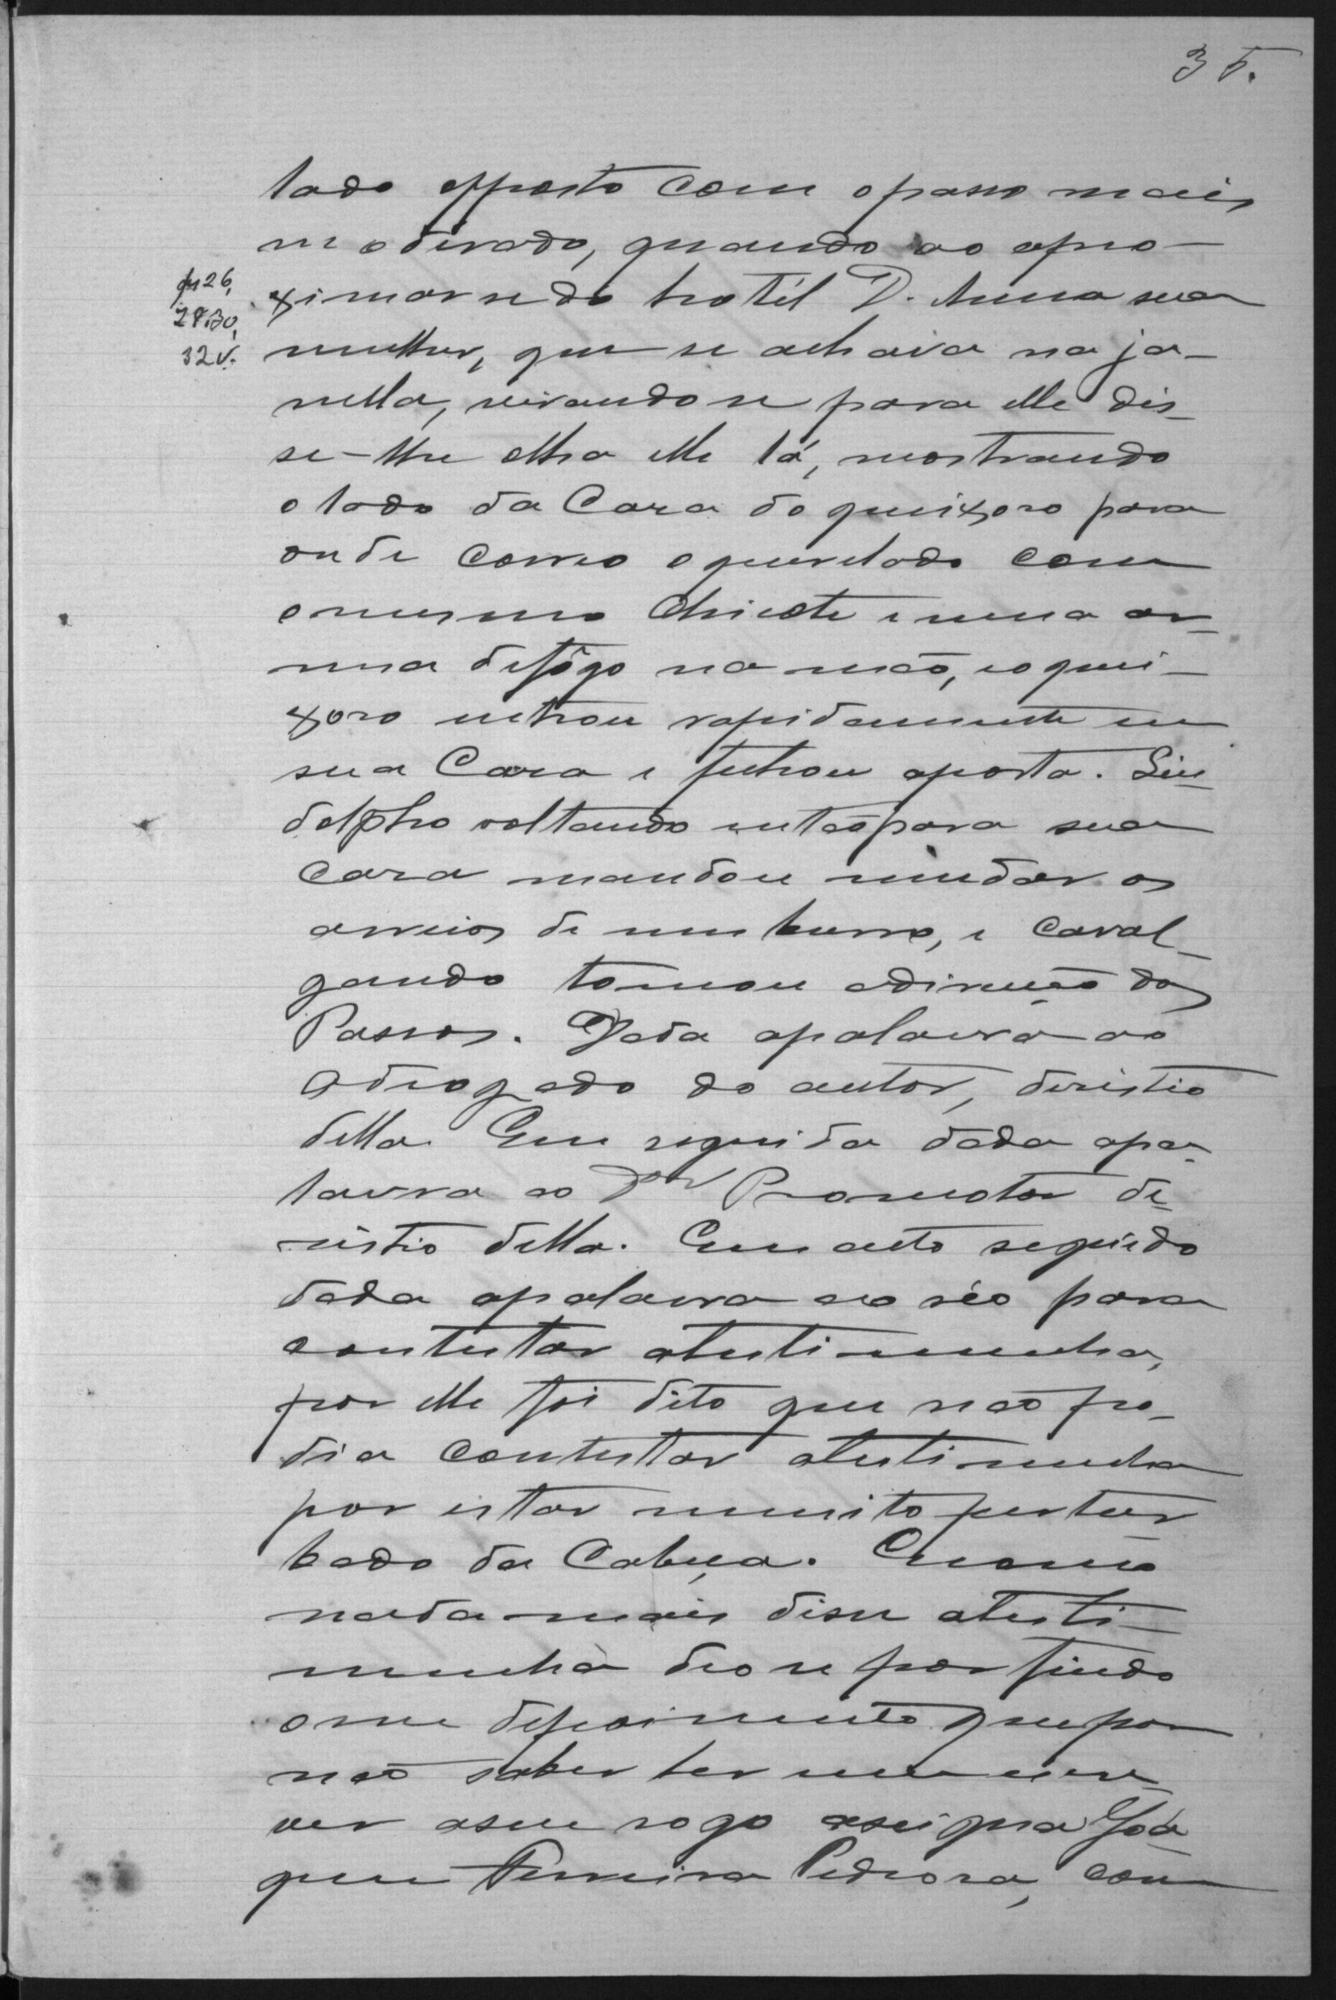 35.
lado opposto com o passo mais
moderado, quando ao apro-
ximar se do hotél D. Anna sua
fls 26,
28. 30,
32 v.
mulher, que se achava na ja-
nella, virando se para elle dis-
se-lhe olha elle lá, mostrando
o lado da Casa do queixoso para
onde correo o querelado com
o mesmo Chicote e uma ar-
ma de fôgo na mão, e o quei-
xoso entrou rapidamente em
sua Casa e fechou a porta. Lin-
dolpho voltando então para sua
casa mandou mudar os
arreios de um burro, e Caval-
gando tomou a direcção dos
Passos. Dada a palavra ao
advogado do autor, desistio
della. Em seguida dada a pa-
lavra ao Dr Promotor de-
sistio della. Em acto seguido
dada a palavra ao réo para
contestar a testimunha,
por elle foi dito que não po-
dia contestar a testimunha
por estar muito pertur-
bado da Cabeça. E como
nada mais disse a testi-
munha deo se por findo
o seu depoimento que por
não saber ler nem escre-
ver a seu rogo assigna Joa-
quim Ferreira Pedrosa, com